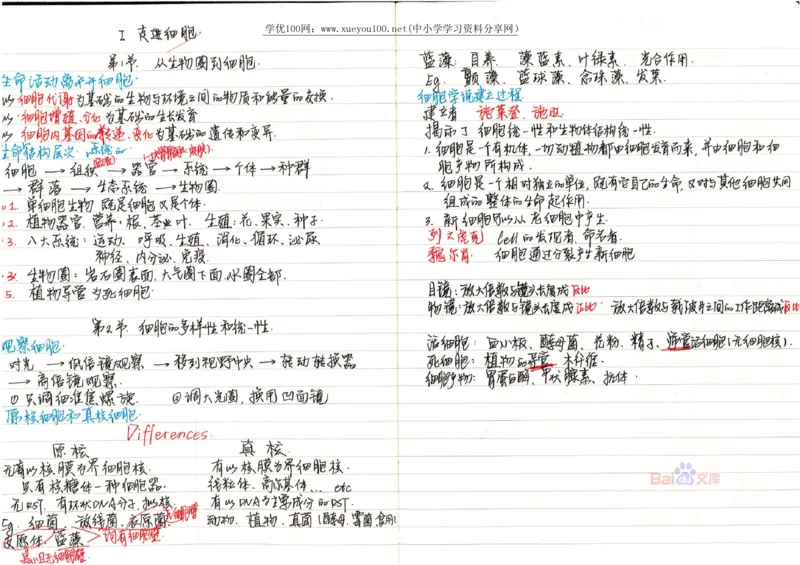 学优100网：www.xueyou100.net(中小学学习资料分享网)
I 走进细胞
第1节 从生物圈到细胞.
生命活动离不开细胞.
以细胞代谢为基础的生物与环境之间的物质和能量的交换.
以细胞增殖、分化为基础的生长发育
以细胞内基因的传递、变化为基础的遗传和变异.
生命结构层次:
细胞 → 组织 → 器官 → 系统 → 个体 → 种群
→ 群落 → 生态系统 → 生物圈.
1. 单细胞生物 既是细胞又是个体.
2. 植物器官. 营养:根、茎、叶. 生殖:花、果实、种子.
3. 八大系统:运动、呼吸、生殖、消化、循环、泌尿、
神经、内分泌、免疫.
生物圈:岩石圈表面,大气圈下面,水圈全部.
5. 植物导管为死细胞.
第2节. 细胞的多样性和统一性.
观察细胞.
对光 → 低倍镜观察 → 移到视野中央 → 转动转换器
→ 高倍镜观察.
①只调细准焦螺旋. ②调大光圈,换用凹面镜
原核细胞和真核细胞.
Differences.
原核 真核
无有以核膜为界细胞核. 有以核膜为界细胞核.
只有核糖体一种细胞器. 线粒体、高尔基体… etc
无RST, 有环状DNA分子, 拟核. 有以DNA为主要成分的RST.
Eg. 细菌、放线菌、衣原体 动物、植物、真菌(酵母、霉菌、食用)
支原体、蓝藻 均有细胞壁
最小且无细胞壁
蓝藻: 自养. 藻蓝素、叶绿素. 光合作用.
Eg. 颤藻、蓝球藻、念珠藻、发菜.
细胞学说建立过程
建立者 施莱登、施旺.
揭示了 细胞统一性和生物体结构统一性.
1. 细胞是一个有机体,一切动植物都由细胞发育而来,并由细胞和细
胞产物所构成.
2. 细胞是一个相对独立的单位,既有它自己的生命,又对与其他细胞共同
组成的整体的生命起作用.
3. 新细胞可以从老细胞中产生.
列文虎克 Cell的发现者,命名者.
魏尔肖. 细胞通过分裂产生新细胞
目镜:放大倍数与镜头长度成反比
物镜:放大倍数与镜头长度成正比. 放大倍数与载玻片之间的工作距离成反比
活细胞: 血小板、酵母菌、花粉、精子、筛管活细胞(无细胞核).
死细胞: 植物的导管、木纤维.
细胞产物: 胃蛋白酶、甲状腺素、抗体.
Baidu文库